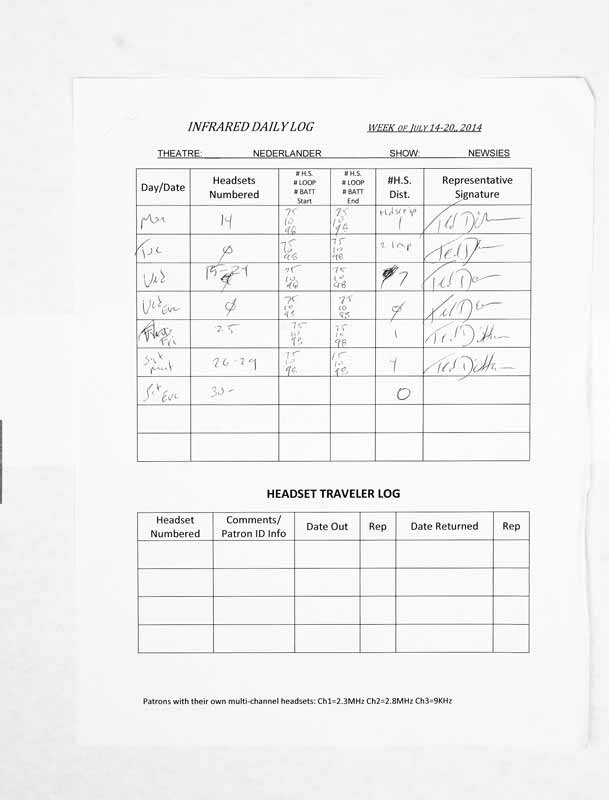 INFRARED DAILY LOG WEEK OF JULY 14-20,, 2014
THEATRE: NEDERLANDER SHOW: NEWSIES
Day/Date Headsets Numbered # H.S. # LOOP # BATT Start # H.S. # LOOP # BATT End #H.S. Dist. Representative Signature
Mon 14 75 10 98 75 10 98 1 Ted
Tue ∅ 75 10 98 75 10 98 2 Imp Ted
Wed 15-24 75 10 98 75 10 98 7 Ted
Wed Eve ∅ 75 10 75 10 ∅ Ted
Fri 25 75 10 75 10 98 1 Ted
Sat Mat 26-29 75 10 98 75 10 4 Ted
Sat Eve 30- 0
HEADSET TRAVELER LOG
Headset Numbered Comments/ Patron ID Info Date Out Rep Date Returned Rep
Patrons with their own multi-channel headsets: Ch1=2.3MHz Ch2=2.8MHz Ch3=9KHz